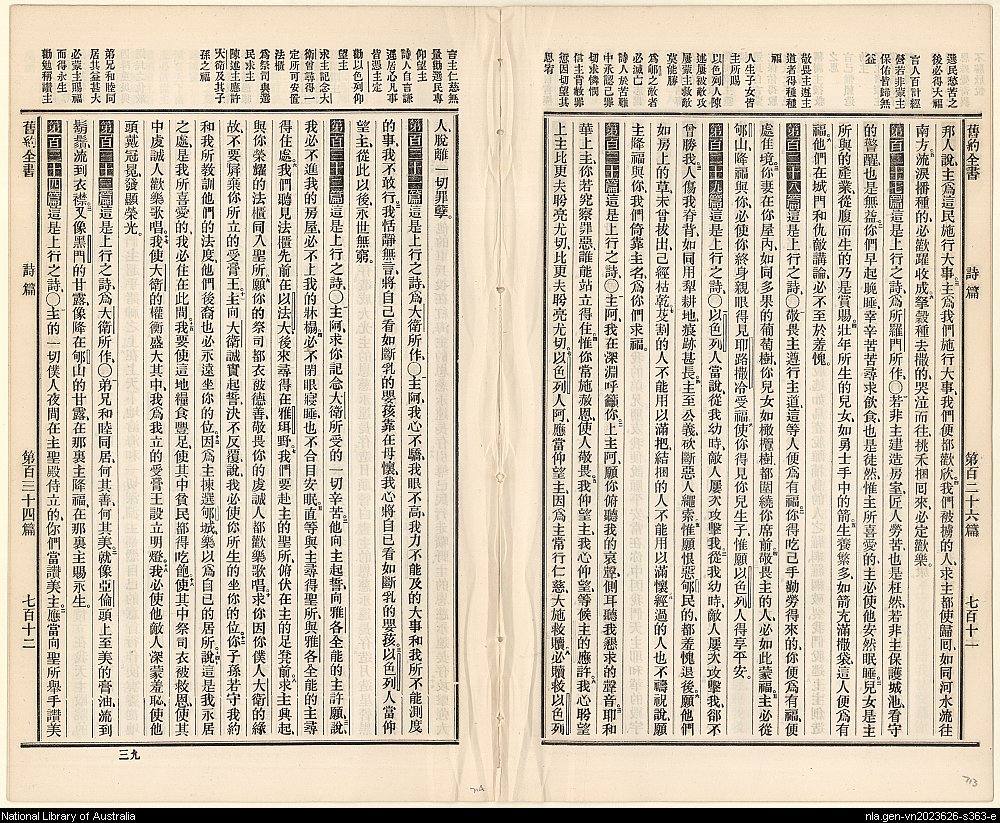 舊約全書　詩篇　第百二十六篇　七百十一
選民愁苦之
後必得大福
言人百計經
營若非蒙主
保佑皆歸無
益
敬畏主遵主
道者得種種
福
人生子女皆
主所賜
以色列人陳
述屢被敵攻
屢蒙主救敵
莫能勝
爲郇之敵者
必滅亡
詩人於苦難
中承認己罪
切求憐憫
信主肯赦罪
慇因切望其
恩宥
那人說、主爲這民施行大事、主爲我們施行大事、我們便都歡欣、我們被擄的人求主都使歸回、如同河水流往
南方、流淚播種的、必歡躍收成、拏穀種去撒的、哭泣而往、挑禾捆囘來、必定歡樂。
第百二十七篇 這是上行之詩、爲所羅門所作、〇若非主建造房室、匠人勞苦也是枉然、若非主保護城池、看守
的警醒也是無益、你們早起晚睡、辛辛苦苦尋求飲食、也是徒然、惟主所喜愛的、主必使他安然眠睡、兒女是主
所與的產業、從腹而生的、乃是賞賜、壯年所生的兒女、如勇士手中的箭、生養繁多如箭充滿撒袋、這人便爲有
福、他們在城門和仇敵講論、必不至於羞愧。
第百二十八篇 這是上行之詩、〇敬畏主遵行主道、這等人便爲有福、你得吃己手勤勞得來的、你便爲有福、便
處佳境、你妻在你屋內、如同多果的葡萄樹、你兒女如橄欖樹、都圍繞你席前、敬畏主的人、必如此蒙福、主必從
郇山降福與你、必使你終身親眼得見耶路撒冷受福、使你得見你兒生子、惟願以色列人得享平安。
第百二十九篇 這是上行之詩、〇以色列人當說、從我幼時、敵人屢次攻擊我、從我幼時、敵人屢次攻擊我、卻不
曾勝我、人傷我脊背、如同用犁耕地、痕跡甚長、主至公義、砍斷惡人繩索、惟願恨惡郇民的、都羞愧退後、願他們
如房上的草、未曾拔出、已經枯乾、芟割的人不能用以滿把、結捆的人不能用以滿懷、經過的人也不禱祝說、願
主降福與你、我們倚靠主名爲你們求福。
第百三十篇 這是上行之詩、〇主阿、我在深淵呼籲你、主阿、願你俯聽我的哀聲、側耳聽我懇求的聲音、耶和
華上主、你若究察罪惡、誰能站立得住、惟你常施赦恩、使人敬畏、我仰望主、我心仰望等候主的應許、我心盼望
上主、比更夫盼亮尤切、比更夫盼亮尤切、以色列人阿、應當仰望主、因爲主常行仁慈、大施救贖、必贖救以色列
舊約全書　詩篇　第百三十四篇　七百十二
言主仁慈無
量勸選民專
仰望主
詩人自言謙
遜居心凡事
皆憑主定
勸以色列仰
望主
求主記念大
衛曾尋得一
定所可安置
法櫃
爲祭司與選
民求主
陳述主應許
大衛及其子
孫之福
弟兄和睦同
居其益甚大
必蒙主賜福
而得永生
勸勉稱讚主
人、脫離一切罪孽。
第百三十一篇 這是上行之詩、爲大衛所作、〇主阿、我心不驕、我眼不高、我力不能及的大事、和我所不能測度
的事、我不敢行、我恬靜無言、將自己看如斷乳的嬰孩、靠在母懷、我心將自己看如斷乳的嬰孩、以色列人當仰
望主、從此以後、永世無窮。
第百三十二篇 這是上行之詩、〇主阿、求你記念大衛所受的一切辛苦、他向主起誓、向雅各全能的主許願、說、
我必不進我的房屋、必不上我的牀榻、必不閉眼寢睡、也不合目安眠、直等與主尋得聖所、與雅各全能的主尋
得住處、我們聽見法櫃先前在以法大、後來尋得在雅珥野、我們要赴主的聖所、俯伏在主的足凳前、求主興起
與你榮耀的法櫃、同入聖所、願你的祭司都衣被德善、敬畏你的虔誠人都歡樂歌唱、求你因你僕人大衛的緣
故、不要屏棄你所立的受膏王、主向大衛誠實起誓、決不反覆、說、我必使你所生的坐你的位、你子孫若守我約
和我所教訓他們的法度、他們後裔也必永遠坐你的位、因爲主揀選郇城、樂以爲自己的居所、說、這是我永居
之處、是我所喜愛的、我必住在此間、我要使這地糧食豐足、使其中貧民都得吃飽、使其中祭司衣被救恩、使其
中虔誠人歡樂歌唱、我使大衛的權衡盛大其中、我爲我立的受膏王設立明燈、我必使他敵人深蒙羞恥、使他
頭戴冠冕、發顯榮光。
第百三十三篇 這是上行之詩、爲大衛所作、〇弟兄和睦同居、何其善何其美、就像亞倫頭上至美的膏油、流到
鬍鬚、流到衣襟、又像黑門的甘露、像降在郇山的甘露、在那裏主降福、在那裏主賜永生。
第百三十四篇 這是上行之詩、〇主的一切僕人、夜間在主聖殿侍立的、你們當讚美主、應當向聖所舉手讚美
三九
713
National Library of Australia
nla.gen-vn2023626-s363-e